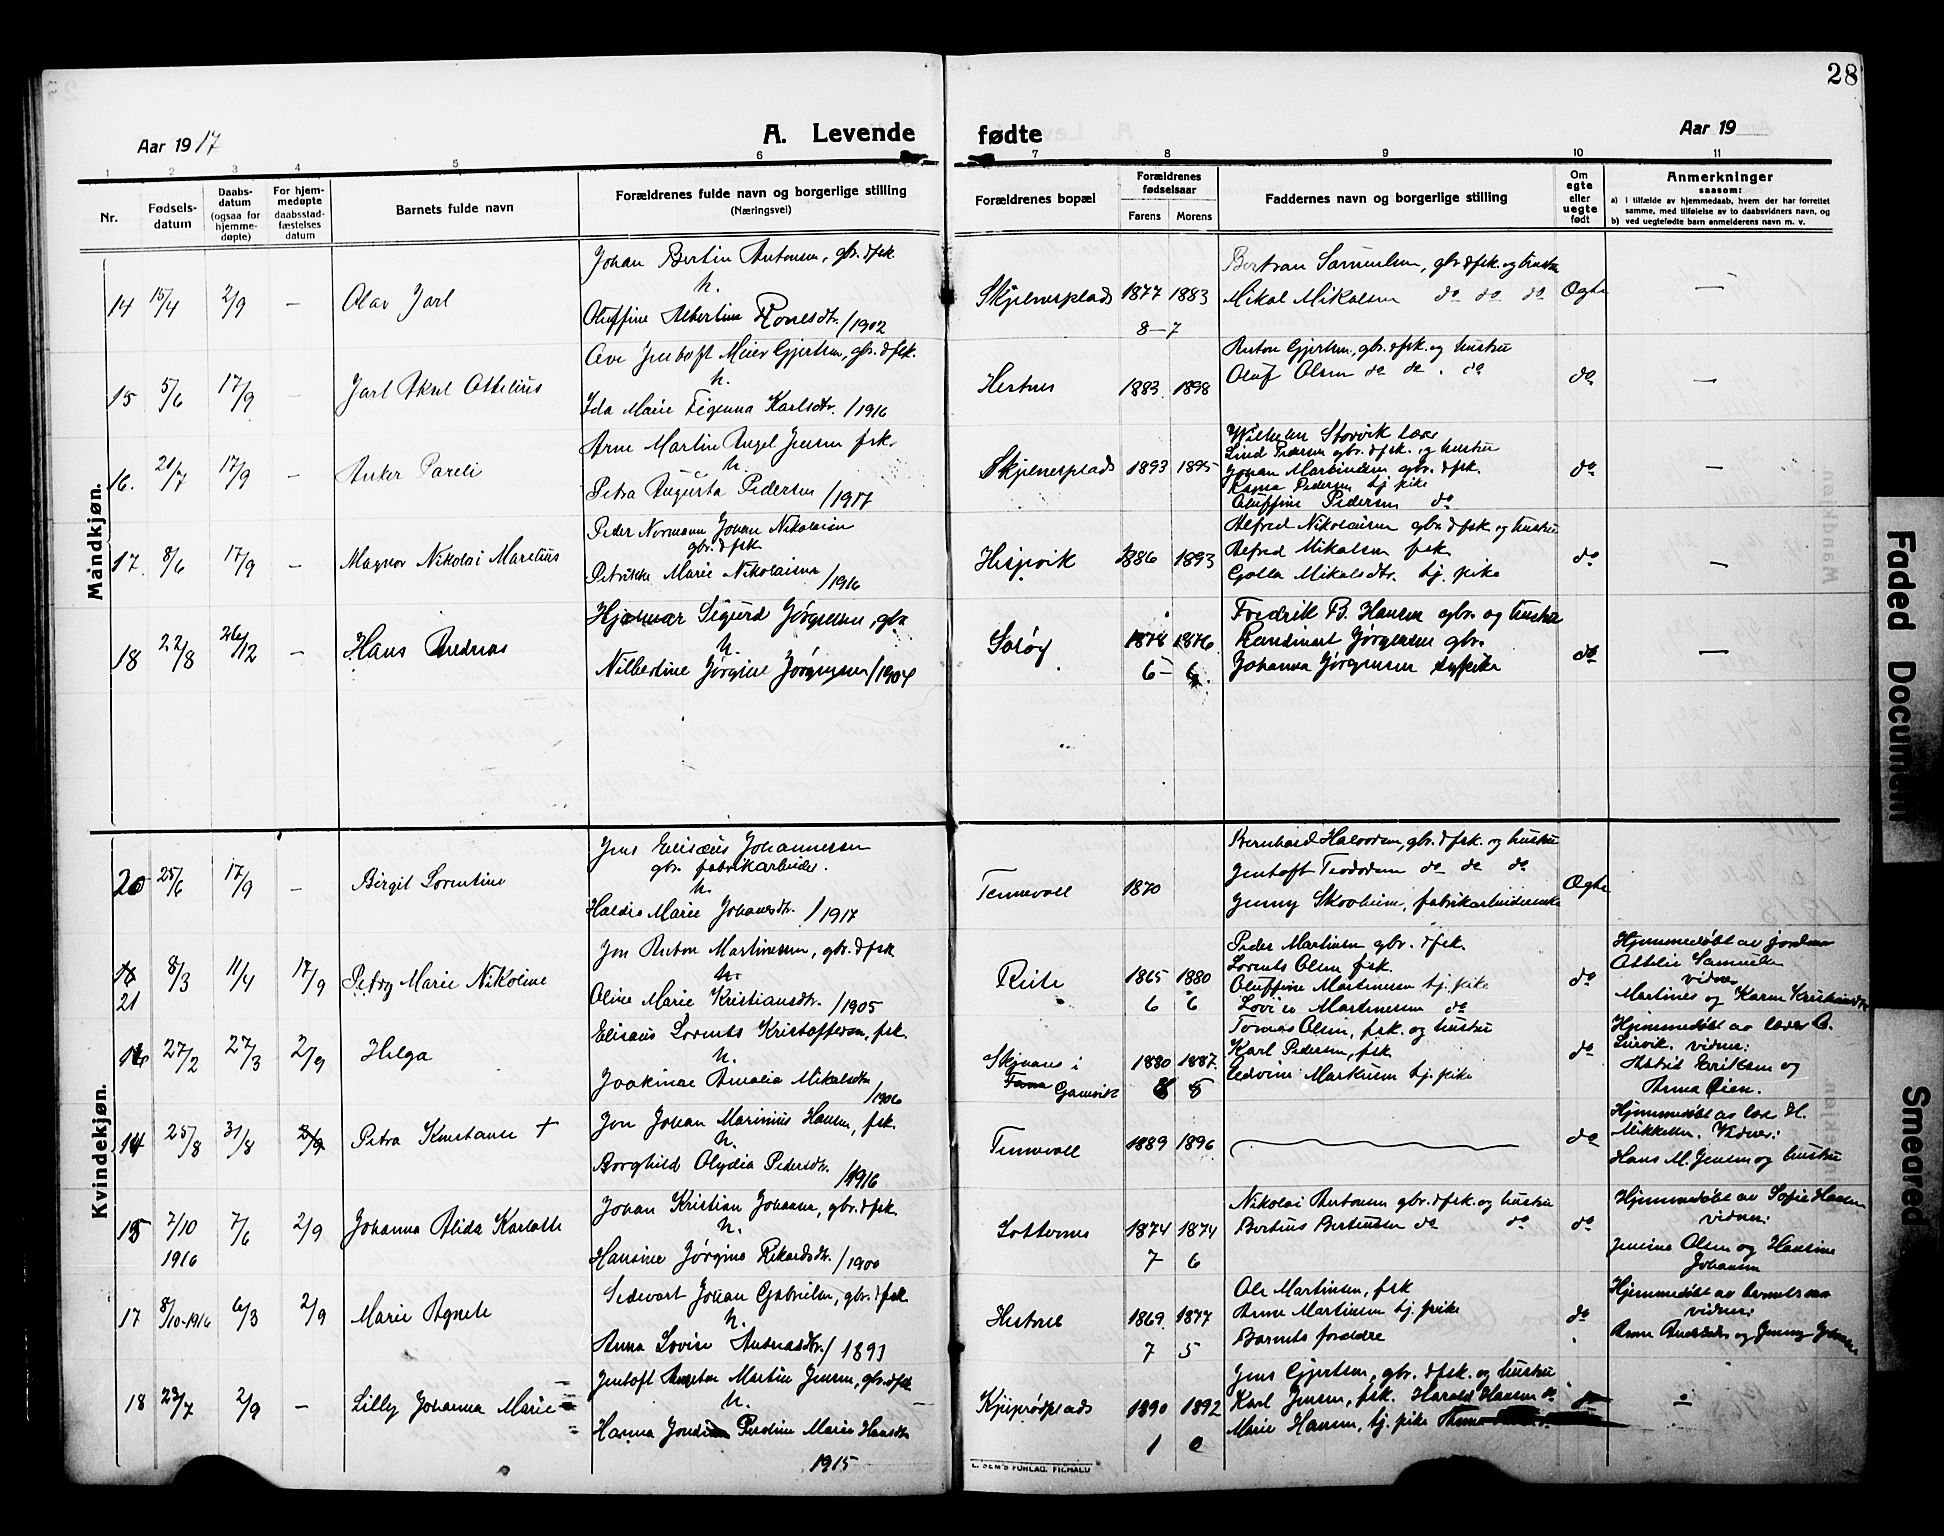 28
Aar 1917
A. Levende fødte
Aar 19
1 2 3 4 5 6 7 8 9 10 11
Nr.
Fødsels-
datum
Daabs-
datum
(ogsaa for
hjemme-
døpte)
For hjem-
medøpte
daabsstad-
fæstelses
datum
Barnets fulde navn
Forældrenes fulde navn og borgerlige stilling
(Næringsvei)
Forældrenes bopæl
Forældrenes
fødselsaar
Farens Morens
Faddernes navn og borgerlige stilling
Om
egte
eller
uegte
født
Anmerkninger
saasom:
a) i tilfælde av hjemmedaab, hvem der har forrettet
samme, med tilføielse av to daabsvidners navn, og
b) ved uegtefødte barn anmelderens navn m. v.
Mandkjøn.
Johan Bertin Antonsen, gbr. & fsk.
h.
14 15/4 2/9 — Olav Jarl
Oluffine Albertine /1902
Skjelnesplads 1877 1883
8 — 7
Bertran Samuelsen, gbr. & fsk. og hustru
Mikal Mikalsen do do do
Ægte —
Ove Jentoft Meier Gjertsen, gbr. & fsk.
h.
15 5/6 17/9 — Jarl Ottelius
Ida Marie Karlsdtr. /1916
Hestnes 1883 1898
Anton Gjertsen, gbr. & fsk. og hustru
Oluf Olsen do do. do
do —
Arne Martin Angel Jensen fsk.
h.
16. 21/7 17/9 — Anker Pareli
Petra Augusta Pedersen /1917
Skjelnesplads 1893 1895
Wilhelm Storvik lærer
Lind Pedersen gbr. & fsk. og hustru
Johan Martinsen gbr. & fsk.
Pedersen tj. pike
Oluffine Pedersen do
do —
Peder Normann Johan Nikolaisen
gbr. & fsk
17. 8/6 17/9 — Magnor Nikolai Marelius
Marie Nikolaisen /1916
1886 1893
Alfred Nikolaisen gbr. & fsk. og hustru
Alfred Mikalsen fsk.
Golla Mikalsdtr. tj. pike
do —
Hjalmar Sigurd Jørgensen, gbr
h.
18 22/8 26/12 — Hans Andreas
Nilberdine Jørgine Jørgensen /1904
Sørøy 1878 1876
6 — 6
Fredrik B. Hansen gbr. og hustru
Randinart Jørgensen gbr.
Johanna Jørgensen sypike
do —
Kvindekjøn.
Jens Elisæus Johannessen
gbr. fabrikarbeider.
h.
20 25/6 17/9 — Birgit Lorentine
Haldis Marie Johansdtr. /1917
Tennevoll 1870
Bernhard Halvorsen, gbr. & fsk. og hustru
Jentoft Teodorsen do do do
Jenny Skovheim, fabrikarbeiderske
Ægte
Jon Anton Martinessen, gbr. & fsk
h.
21 8/3 11/4 17/9 Petry Marie Nikoline
Oline Marie Kristiansdtr. /1905
Reite 1865 1880
6 6
Peder Martinsen gbr. & fsk.
Lorents Olsen fsk.
Oluffine Martinsen tj. pike
Martinessen do
do
Hjemmedøbt av jordmor
Ottelie Samuelsen
vidner
Martines og Karen
Elisæus Lorents Kristoffersen, fsk.
h.
16 27/2 27/3 2/9 Helga
Joakinae Amalia Mikalsdtr
/1906
i
Gamvik 1880 1887
8 5
Tomas Olsen, fsk. og hustru
Karl Pedersen, fsk
Edvine Markusen tj. pike
do
Hjemmedøbt av lærer O.
Lervik. vidner:
Astrid Eriksen og
Anna Øien.
Jon Johan Marinius Hansen, fsk.
h.
14 25/8 31/8 2/9 Petra Konstanse +
Borghild Olydia Pedersdtr. /1916
Tennevoll 1889 1896
do
Hjemmedøbt av lær H.
Mikkelsen. Vidner:
Hans M. Jensen og hustru
Johan Kristian Johansen, gbr. & fsk.
h.
15 7/10 7/6 2/9 Johanna Alida Karlotte
1916
Hansine Jørgine Rikardsdtr. /1900
1874 1874
7 6
Nikolai Antonsen gbr. & fsk. og hustru
Bertius Bertiussen do do
do
Hjemmedøbt av Sofie Hansen
vidner:
Jensine Olsen og Hansine
Johansen
Sedevart Johan Gabrielsen, gbr. & fsk
h.
17 8/10-1916 6/3 2/9 Marie Agnete
Anna Lovise Andreasdtr. /1893
Hestnes 1869 1877
7 5
Ole Martinsen, fsk
Anne Martinsen tj. pike
Barnets forældre
do
Hjemmedøbt av
vidner:
og Jenny
Jentoft Martin Jensen, gbr. & fsk
h.
18 23/7 2/9 — Lilly Johanna Marie
Hanna Perdine Marie Hansdtr
1915
1890 1892
1 0
Jens Gjertsen, gbr. & fsk. og hustru
Karl Jensen, fsk. Harald Hansen do
Marie Hansen, tj. pike
do —
E. SEM'S FORLAG, FR.HALD
Faded Document
Smeared